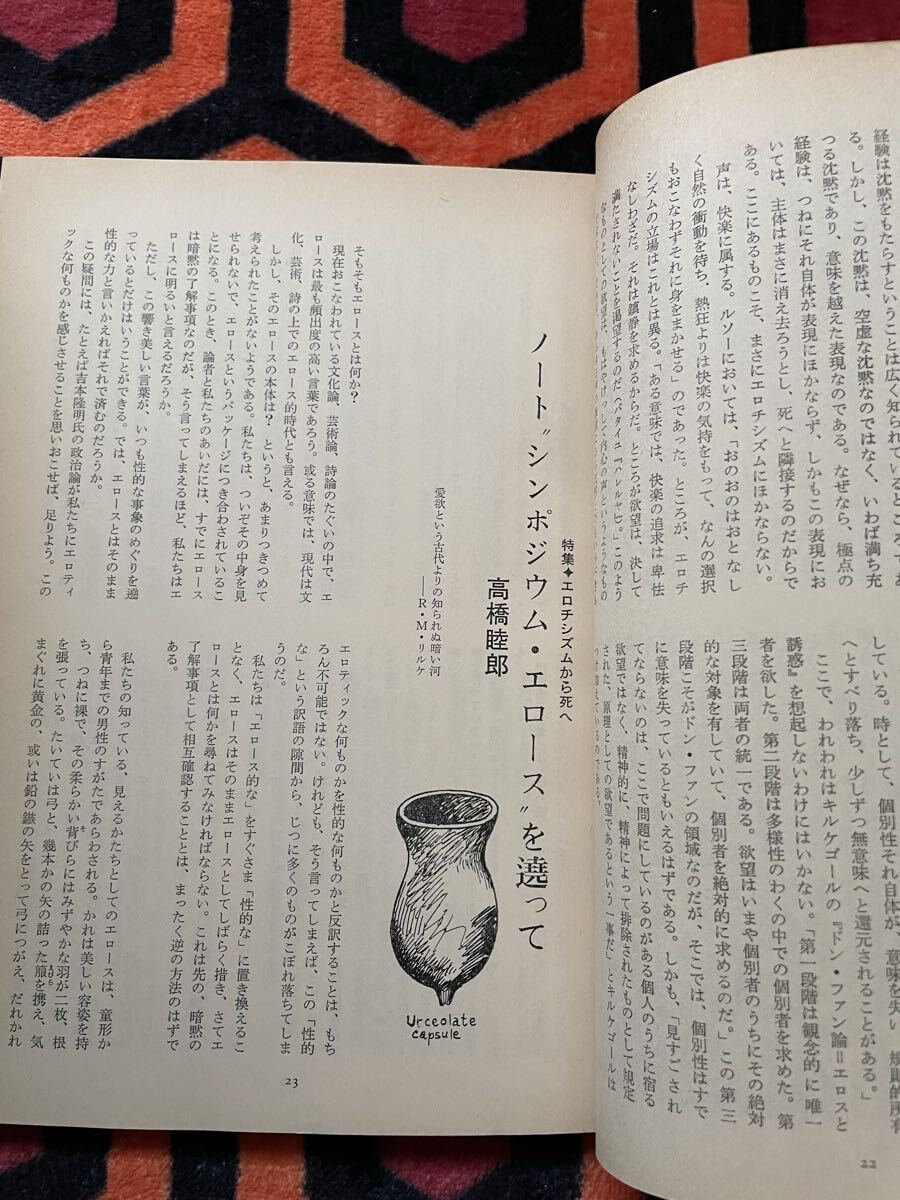 経験は沈黙をもたらすということは広く知られているところで
る。しかし、この沈黙は、空虚な沈黙なのではなく、いわば満ち充
つる沈黙であり、意味を越えた表現なのである。なぜなら、極点の
経験は、つねにそれ自体が表現にほかならず、しかもこの表現にお
いては、主体はまさに消え去ろうとし、死へと隣接するのだからで
ある。ここにあるものこそ、まさにエロチシズムにほかならない。
声は、快楽に属する。ルソーにおいては、「おのおのはおとなし
く自然の衝動を待ち、熱狂よりは快楽の気持をもって、なんの選択
もおこなわずそれに身をまかせる」のであった。ところが、エロチ
シズムの立場はこれとは異る。「ある意味では、快楽の追求は卑怯
なしわざだ。それは鎮静を求めるからだ。ところが欲望は、決して
満たされないことを渇望するのだ」(バタイユ『ハレルヤ』)。このよう
なものとしての欲望は、もはやけっして内心の声というようなもの
規則的所有
している。時として、個別性それ自体が、意味を失い
へとすべり落ち、少しずつ無意味へと還元されることがある。」
ここで、われわれはキルケゴールの『ドン・ファン論=エロスと
誘惑』を想起しないわけにはいかない。「第一段階は観念的に唯一
者を欲した。第二段階は多様性のわくの中での個別者を求めた。第
三段階は両者の統一である。欲望はいまや個別者のうちにその絶対
的な対象を有していて、個別者を絶対的に求めるのだ。」この第三
段階こそがドン・ファンの領域なのだが、そこでは、個別性はすで
に意味を失っているともいえるはずである。しかも、「見すごされ
てならないのは、ここで問題にしているのがある個人のうちに宿る
欲望ではなく、精神的に、精神によって排除されたものとして規定
された、原理としての欲望であるという一事だ」とキルケゴールは
つけ加えているのである。
22
特集✦エロチシズムから死へ
ノート〝シンポジウム・エロース〟を遶って
高橋睦郎
愛欲という古代よりの知られぬ暗い河
――R・M・リルケ
Urceolate
capsule
そもそもエロースとは何か?
現在おこなわれている文化論、芸術論、詩論のたぐいの中で、エ
ロースは最も頻出度の高い言葉であろう。或る意味では、現代は文
化、芸術、詩の上でのエロース的時代とも言える。
しかし、そのエロースの本体は? というと、あまりつきつめて
考えられたことがないようである。私たちは、ついぞその中身を見
せられないで、エロースというパッケージにつき合わされているこ
とになる。このとき、論者と私たちのあいだには、すでにエロース
は暗黙の了解事項なのだが、そう言ってしまえるほど、私たちはエ
ロースに明るいと言えるだろうか。
ただし、この響き美しい言葉が、いつも性的な事象のめぐりを遶
っているとだけはいうことができる。では、エロースとはそのまま
性的な力と言いかえればそれで済むのだろうか。
この疑問には、たとえば吉本隆明氏の政治論が私たちにエロティ
ックな何ものかを感じさせることを思いおこせば、足りよう。この
エロティックな何ものかを性的な何ものかと反訳することは、もち
ろん不可能ではない。けれども、そう言ってしまえば、この「性的
な」という訳語の隙間から、じつに多くのものがこぼれ落ちてしま
うのだ。
私たちは「エロース的な」をすぐさま「性的な」に置き換えるこ
となく、エロースはそのままエロースとしてしばらく措き、さてエ
ロースとは何かを尋ねてみなければならない。これは先の、暗黙の
了解事項として相互確認することとは、まったく逆の方法のはずで
ある。
私たちの知っている、見えるかたちとしてのエロースは、童形か
ら青年までの男性のすがたであらわされる。かれは美しい容姿を持
ち、つねに裸で、その柔らかい背びらにはみずやかな羽が二枚、根
を張っている。たいていは弓と、幾本かの矢の詰った箙を携え、気
まぐれに黄金の、或いは鉛の鏃の矢をとって弓につがえ、だれかれ
23